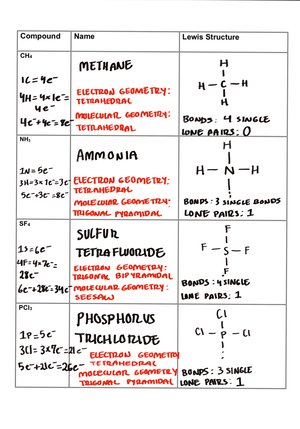 Compound Name Lewis Structure
CH₄
METHANE
1C = 4e⁻
4H = 4x1e⁻=
4e⁻
4e⁻+4e⁻= 8e⁻
ELECTRON GEOMETRY:
TETRAHEDRAL
MOLECULAR GEOMETRY:
TETRAHEDRAL
H
H - C - H
H
BONDS: 4 SINGLE
LONE PAIRS: 0
NH₃
AMMONIA
1N = 5e⁻
3H = 3x1e⁻=3e⁻
5e⁻+3e⁻=8e⁻
ELECTRON GEOMETRY:
TETRAHEDRAL
MOLECULAR GEOMETRY:
TRIGONAL PYRAMIDAL
H
H - N - H
BONDS: 3 SINGLE BONDS
LONE PAIRS: 1
SF₄
SULFUR
TETRAFLUORIDE
1S = 6e⁻
4F = 4x7e⁻=
28e⁻
6e⁻+28e⁻=34e⁻
ELECTRON GEOMETRY:
TRIGONAL BIPYRAMIDAL
MOLECULAR GEOMETRY:
SEESAW
F
F - S - F
F
BONDS: 4 SINGLE
LONE PAIRS: 1
PCl₃
PHOSPHORUS
TRICHLORIDE
1P = 5e⁻
3Cl = 3x7e⁻=21e⁻
5e⁻+21e⁻=26e⁻
ELECTRON GEOMETRY
TETRAHEDRAL
MOLECULAR GEOMETRY
TRIGONAL PYRAMIDAL
Cl
Cl - P - Cl
BONDS: 3 SINGLE
LONE PAIRS: 1